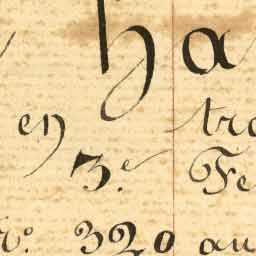 ha
en tra
3.e Fe
r.o 320 au